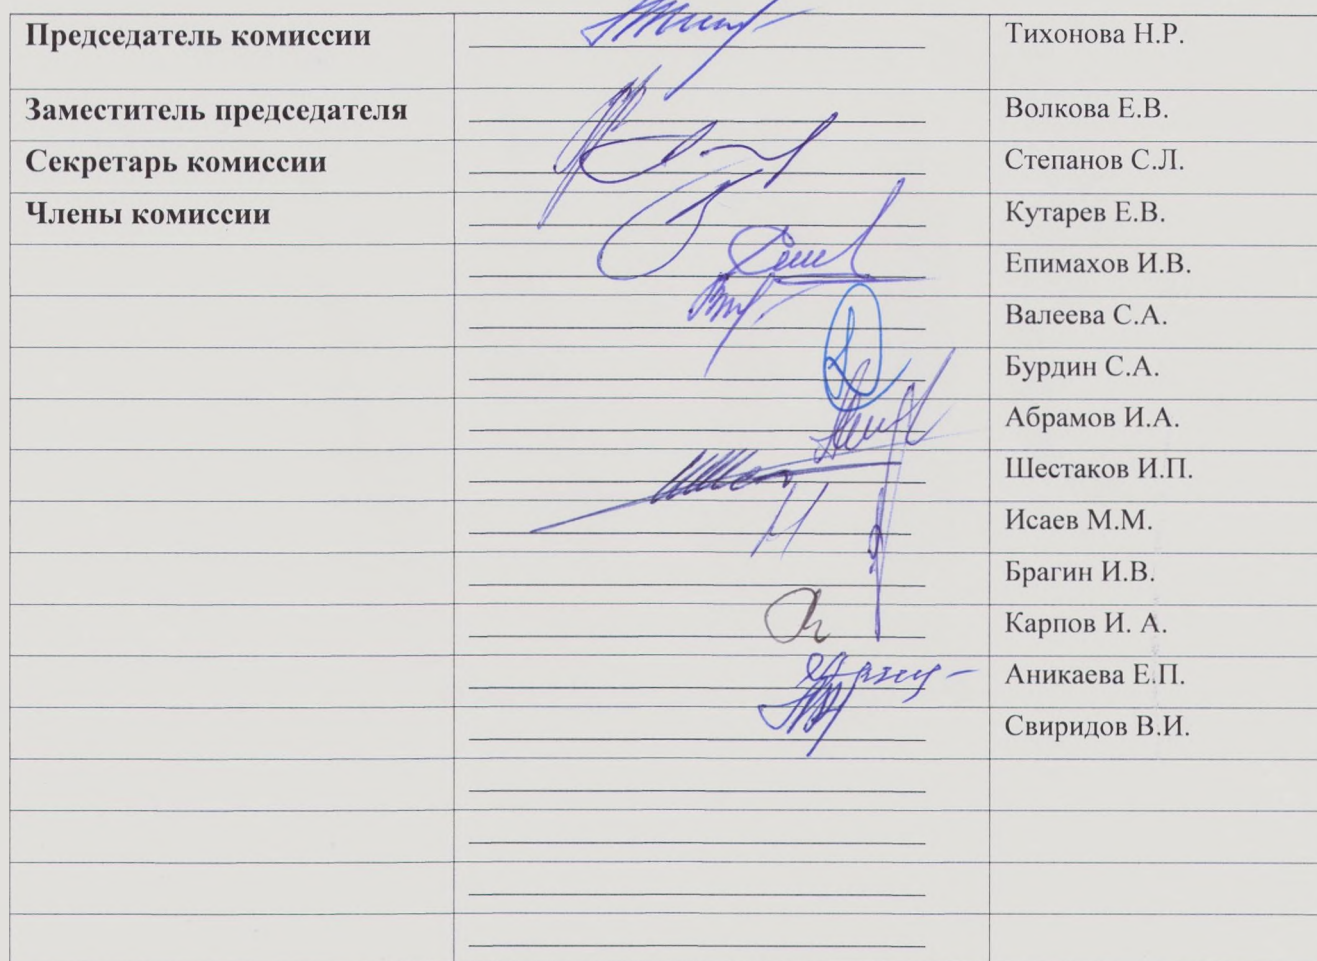 Председатель комиссии Тихонова Н.Р.
Заместитель председателя Волкова Е.В.
Секретарь комиссии Степанов С.Л.
Члены комиссии Кутарев Е.В.
Епимахов И.В.
Валеева С.А.
Бурдин С.А.
Абрамов И.А.
Шестаков И.П.
Исаев М.М.
Брагин И.В.
Карпов И. А.
Аникаева Е.П.
Свиридов В.И.